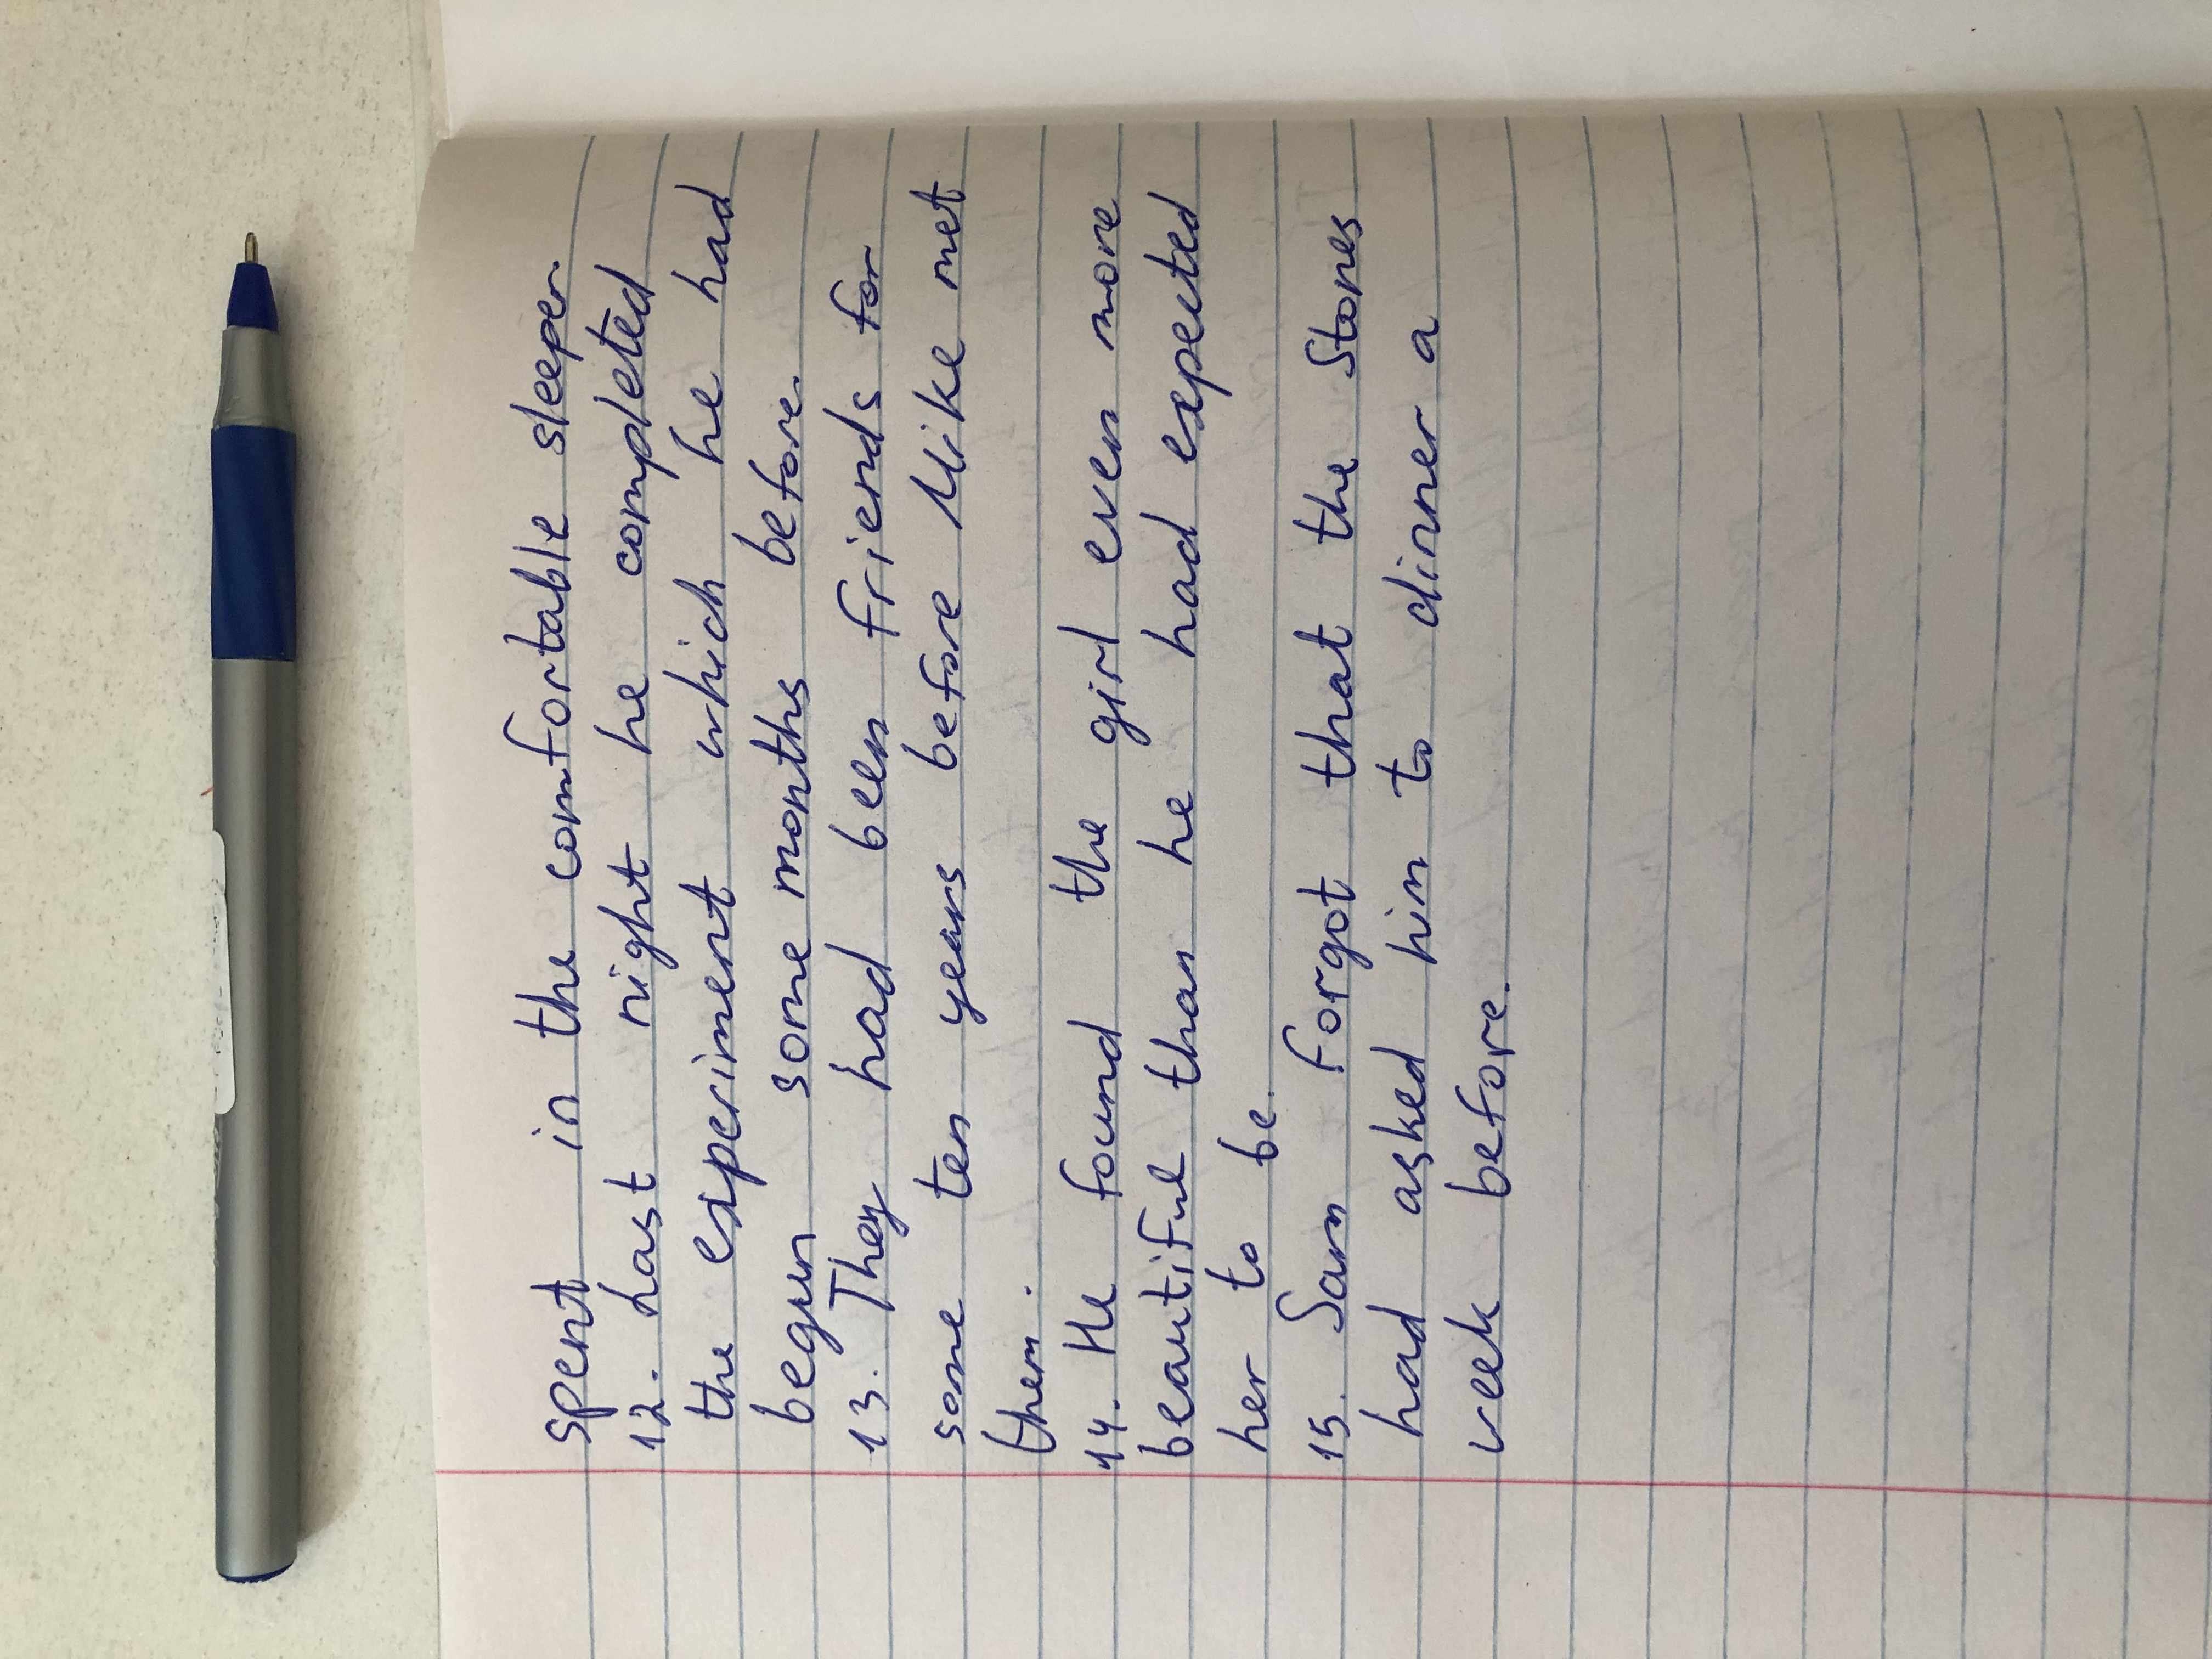 spent in the comfortable sleeper.
12. Last night he completed
the experiment which he had
begun some months before.
13. They had been friends for
some ten years before Mike met
them.
14. He found the girl even more
beautiful than he had expected
her to be.
15. Sam forgot that the Stones
had asked him to dinner a
week before.